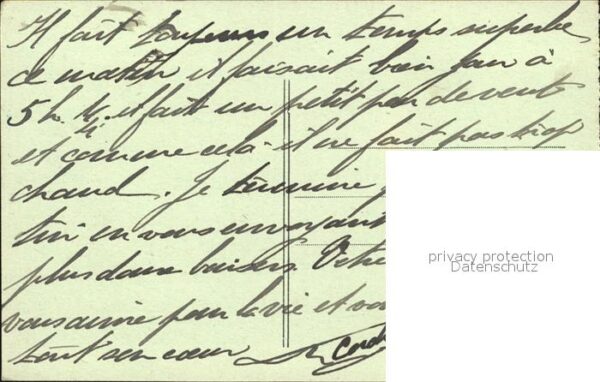 Il fait toujours un temps superbe,
ce matin il faisait bien jour à
5 h. ¼. il fait un petit peu de vent
et comme cela il ne fait pas trop
chaud. Je termine
en vous envoyant
plus doux baisers. Votre
vous aime pour la vie et
tout son cœur
privacy protection
Datenschutz